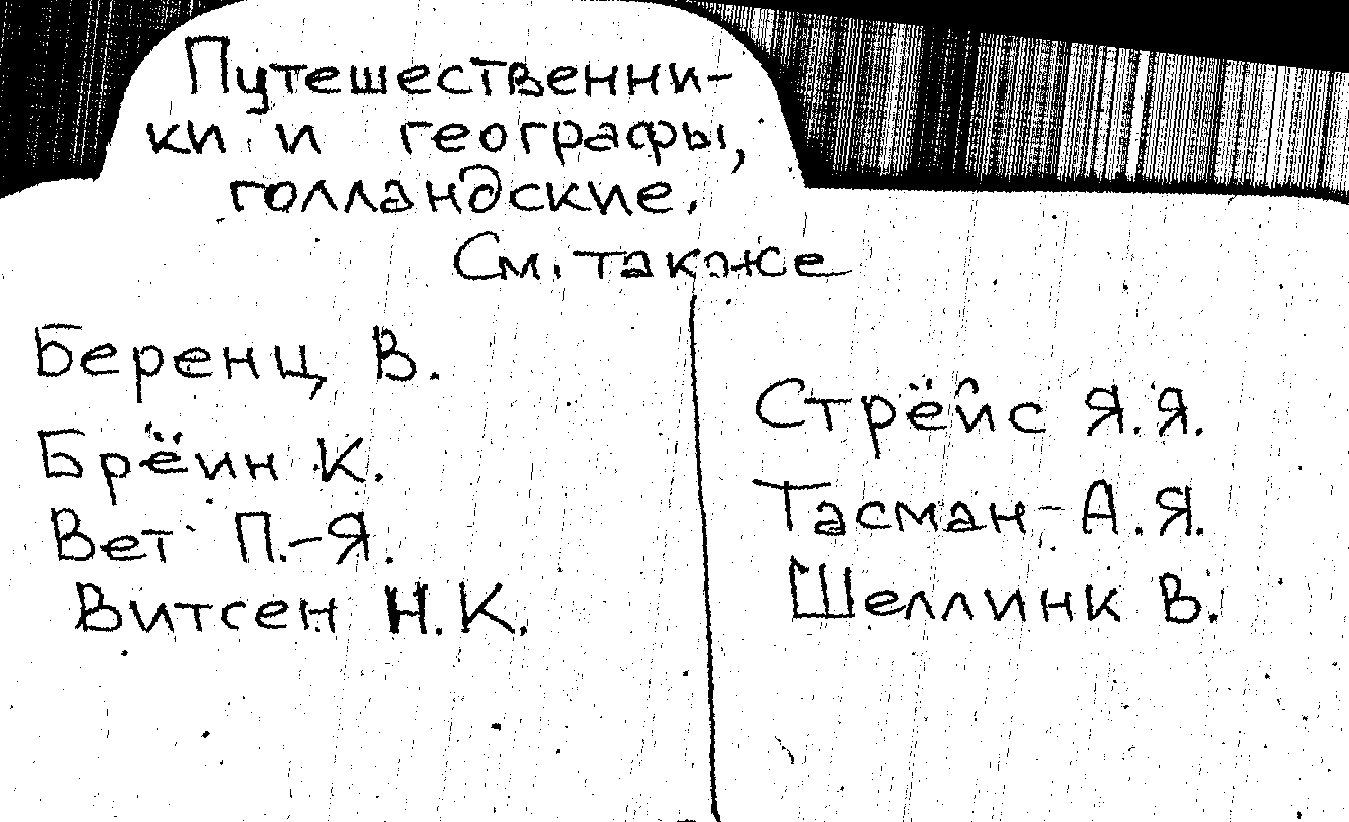 Путешественни-
ки и географы,
голландские.
См. также
Беренц, В.
Брёин К.
Вет П.-Я.
Витсен Н.К.
Стрёйс Я.Я.
Тасман А.Я.
Шеллинк В.